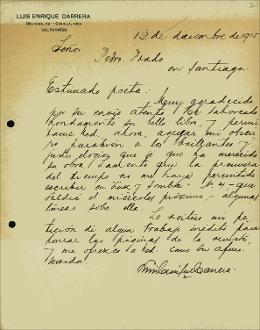 LUIS ENRIQUE CARRERA
VALPARAÍSO
13 de diciembre de 1915
Señor
Pedro Prado
en Santiago
Estimado poeta: Muy agradecido
por su envío atento. He saboreado
hondamente su bello libro, y permí
tame Ud. ahora, agregar mi obscu
ro parabien a los brillantes y
justos elogios que ya ha merecido
su obra. Lamento que la premura
del tiempo no me haya permitido
escribir en "Luz y Sombra" Nº 4 - que
saldrá el miércoles próximo - algunas
líneas sobre ella.
Le reitero mi pe
tición de algún trabajo inédito para
honrar las páginas de la revista,
y me ofrezco a Ud. como su afmo.
Luis Enrique Carrera